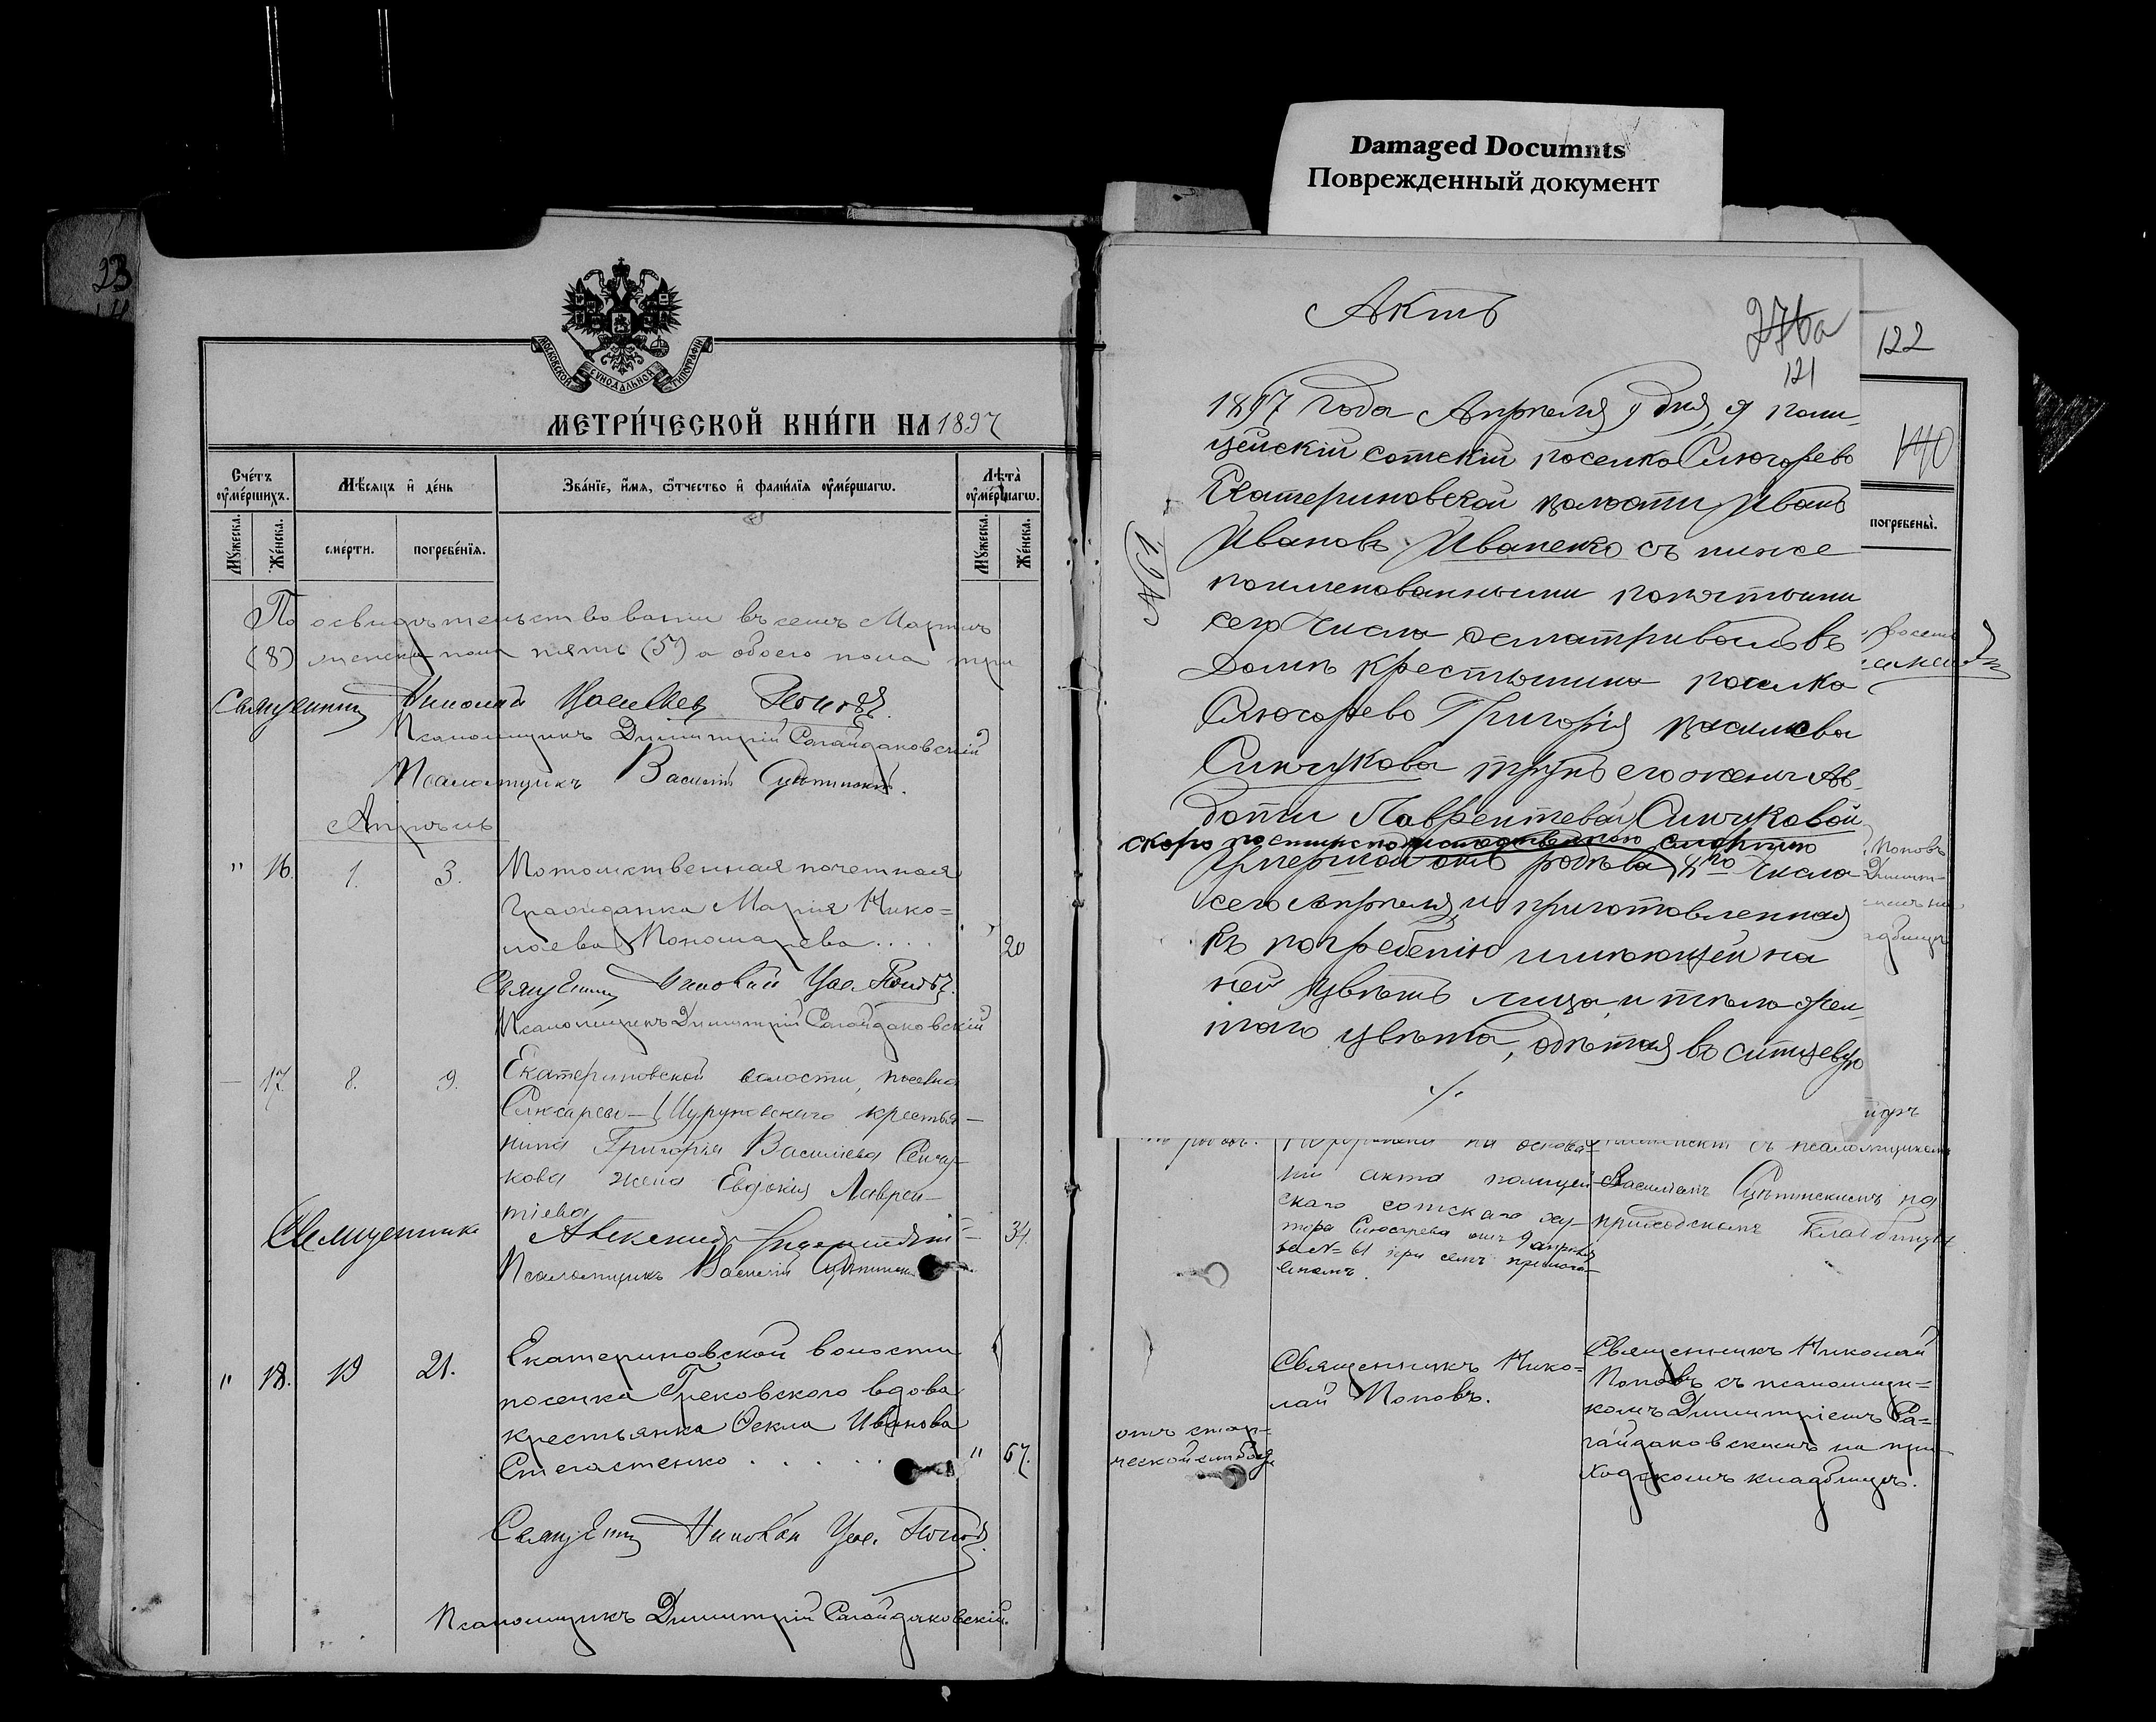 Damaged Documnts
Поврежденный документ
23
МОСКОВСКОЙ СѴНОДАЛЬНОЙ ТИПОГРАФІИ
МЕТРИ́ЧЕСКОЙ КНИ́ГИ НА 1897
Сче́тъ ᲂумéршихъ.
Мѣ́сяцъ и҆ де́нь
Зва́нїе, и҆́мя, ѻ҆́тчество и҆ фами́лїя ᲂумéршагѡ.
Лѣта̀ ᲂумéршагѡ.
Мꙋ́жеска.
Же́нска.
сме́рти.
погребе́нїя.
Мꙋ́жеска.
Же́нска.
По освидѣтельствованіи въ семъ Мартѣ
(8) женска пола пять (5) а обоего пола три
Священникъ Николай Васильевъ Поповъ.
Псаломщикъ Димитрій Сагайдаковскій
Псаломщикъ Василій
Апрѣль
" 16. 1. 3. Потомственная почетная
гражданка Марія Нико=
лаева Пономарева.... " 20
Священникъ Николай Вас. Поповъ.
Псаломщикъ Димитрій Сагайдаковскій
— 17. 8. 9. Екатериновской волости, поселка
Слюсарева-Шурупов­скаго крестья-
нина Григорія Васильева Сенчу-
кова жена Евдокія Лаврен-
тіева = 34.
Священникъ Алексій
Псаломщикъ Василій
" 18. 19 21. Екатериновской волости
поселка Грековскаго вдова
крестьянка Ѳекла Иванова
Стегостенко . . . . . " 67.
Священникъ Николай Вас. Поповъ.
Псаломщикъ Димитрій Сагайдаковскій.
Актъ
276а
121
122
140
погребены̀.
1897 года Апреля 9 дня, я поли-
цейскій сотскій поселка Слюсарево
Екатериновской волости Иванъ
Ивановъ Иваненко съ ниже
поименованными понятыми
сего числа осматривалъ въ
домѣ крестьянина поселка
Слюсарево Григорія Василева
Синчукова трупъ его жены Ав-
дотьи Лаврентевой Синчуковой
скоропостижно смертію
Умершой отъ родовъ 8го числа
сего Апреля, и приготовленная
къ погребенію имеющей на
ней цвѣтъ лица, и тѣло жел-
таго цвѣта, одѣтая въ ситцевую
./.
Поповъ
отъ родовъ.
Похоронена на основа-
ніи акта полицей-
скаго сотскаго ху-
тора Слюсарева отъ 9 апрѣля
за № 61 при семъ прилага-
емомъ.
съ псаломщикомъ
Василіемъ на
приходскомъ кладбищѣ.
отъ стар-
ческой слабос.
Священникъ Нико=
лай Поповъ.
Священникъ Николай
Поповъ съ псаломщи=
комъ Димитріемъ Са=
гайдаковскимъ на при-
ходскомъ кладбищѣ.